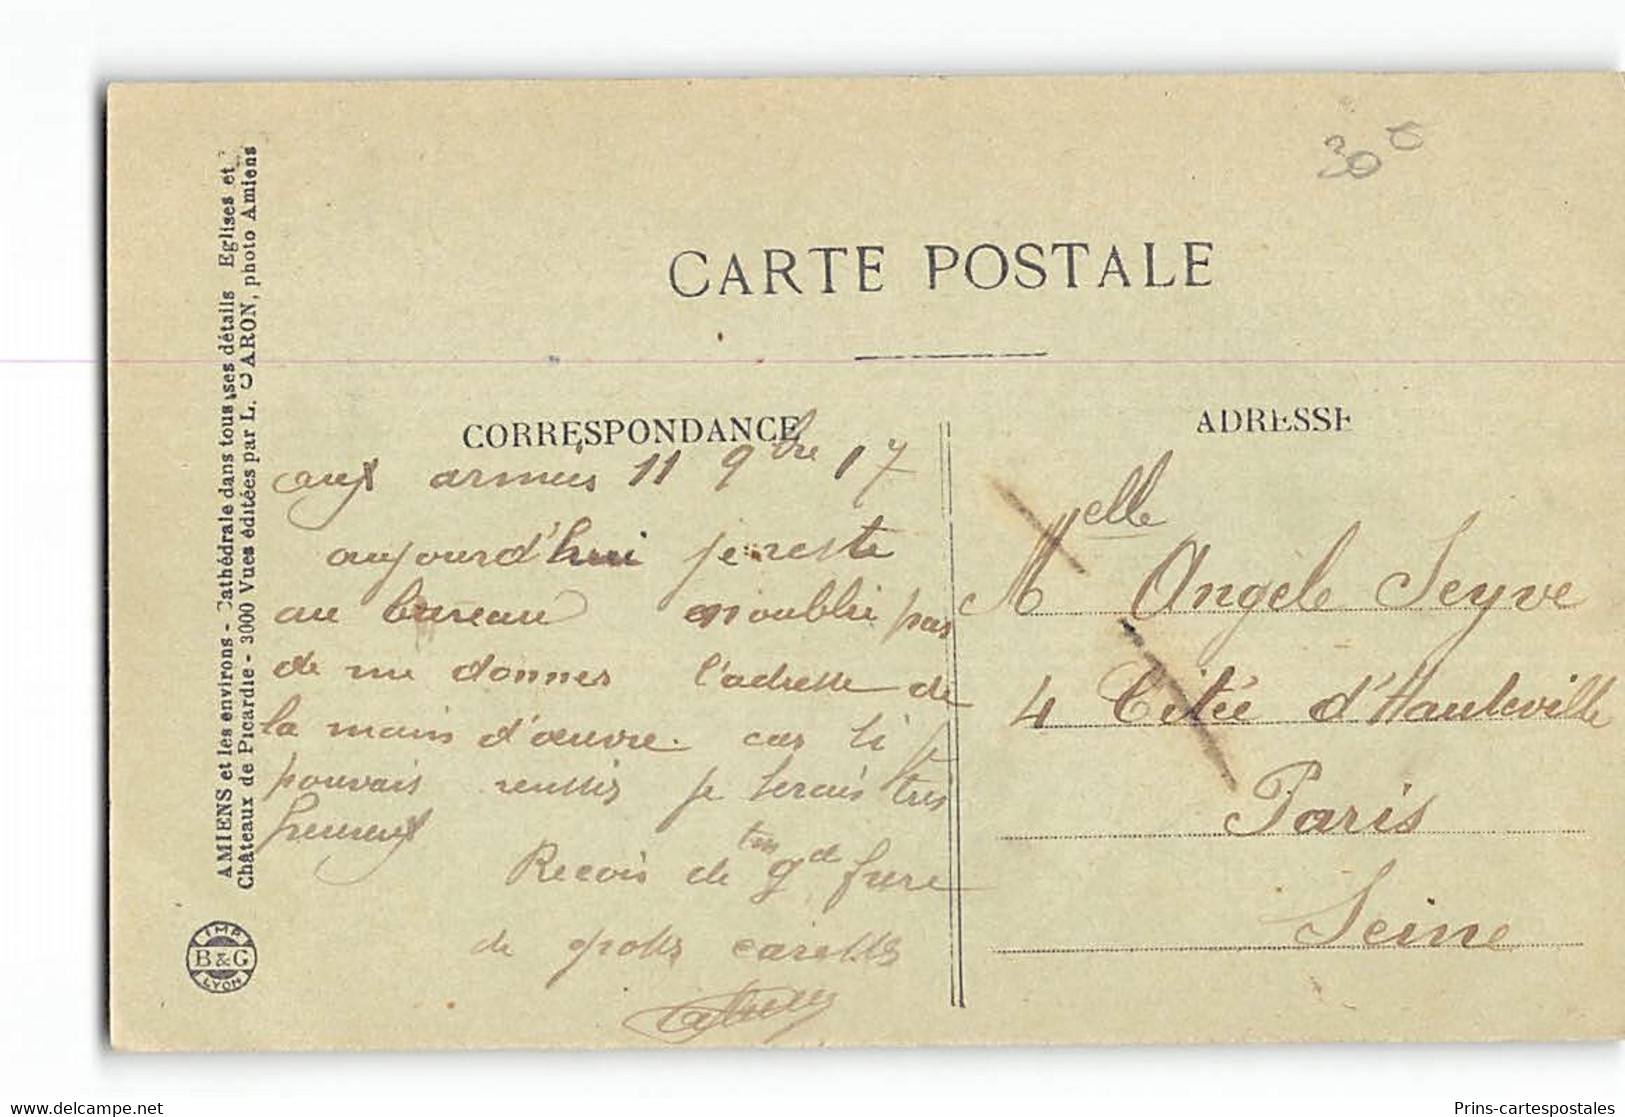 30 €
CARTE POSTALE
CORRESPONDANCE
ADRESSE
aux armées 11 9bre 17
aujourd'hui je reste
au bureau n'oublie pas
de me donner l'adresse de
la main d'œuvre. car si je
pouvais reussir je serais tres
heureux
Recois de tm gd frere
de grosses caresses
Melle Angèle Seyve
4 Citée d'Hauteville
Paris
Seine
AMIENS et les environs - Cathédrale dans tous ses détails Eglises et
Châteaux de Picardie - 3000 Vues éditées par L. CARON, photo Amiens
IMP.
B & G
LYON
Prins-cartespostales